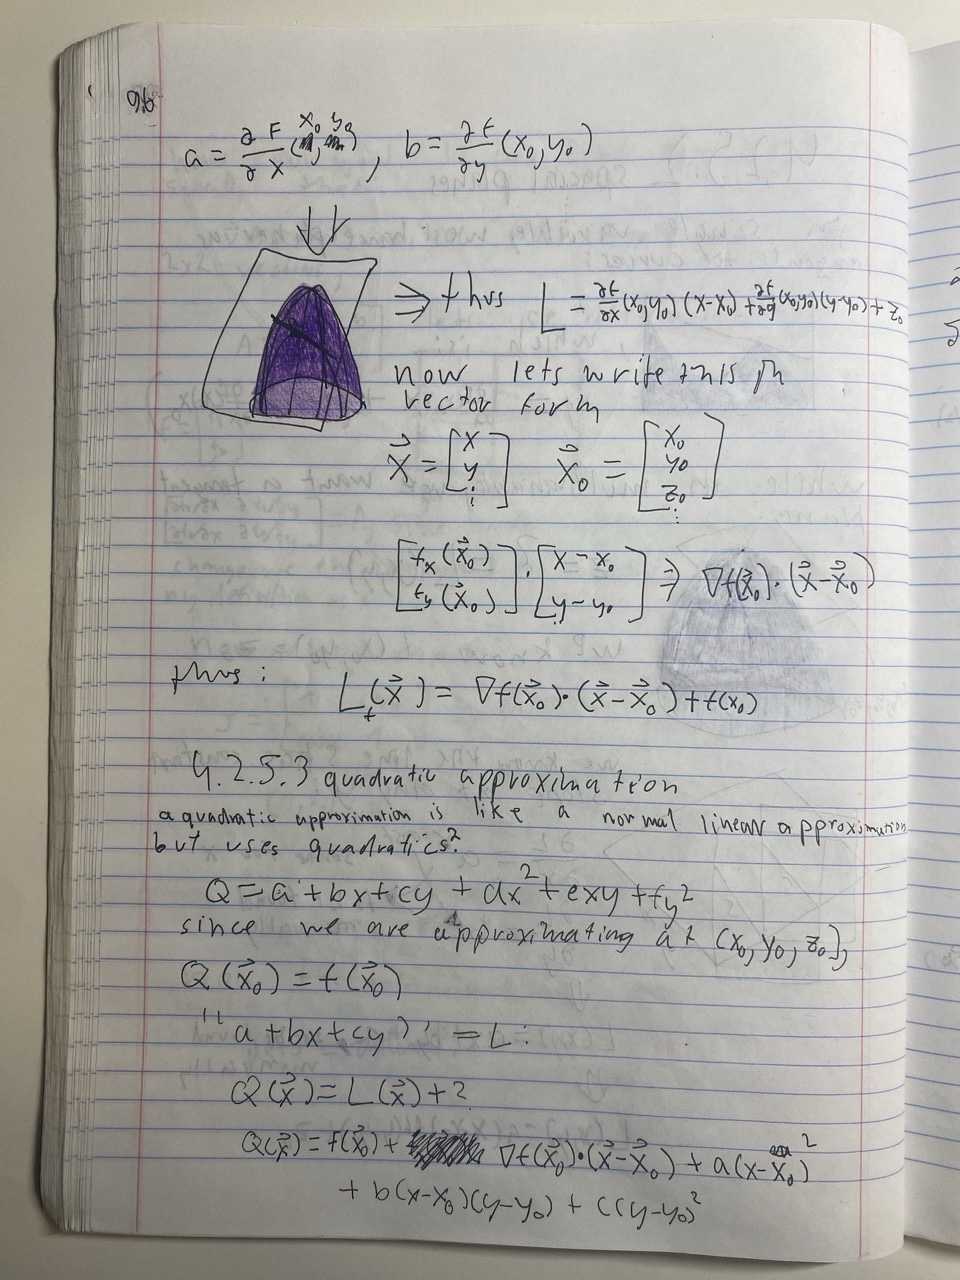 96
a = ∂F/∂x (x₀, y₀), b = ∂f/∂y (x₀, y₀)
⇒ thus L = ∂f/∂x (x₀, y₀) (x-x₀) + ∂f/∂y (x₀, y₀) (y-y₀) + z₀
now lets write this in
vector form
x⃗ = [x y ⋮] x⃗₀ = [x₀ y₀ z₀ ⋮]
[fₓ(x⃗₀) f_y(x⃗₀)] · [x-x₀ y-y₀] ⇒ ∇f(x⃗₀)·(x⃗-x⃗₀)
thus: L_f(x⃗) = ∇f(x⃗₀)·(x⃗-x⃗₀) + f(x₀)
4.2.5.3 quadratic approximation
a quadratic approximation is like a normal linear approximation
but uses quadratics?
Q = a + bx + cy + dx² + exy + fy²
since we are approximating at (x₀, y₀, z₀),
Q(x⃗₀) = f(x⃗₀)
"a + bx + cy" = L:
Q(x⃗) = L(x⃗) + ?
Q(x⃗) = f(x⃗₀) + ∇f(x⃗₀)·(x⃗-x⃗₀) + a(x-x₀)²
+ b(x-x₀)(y-y₀) + c(y-y₀)²